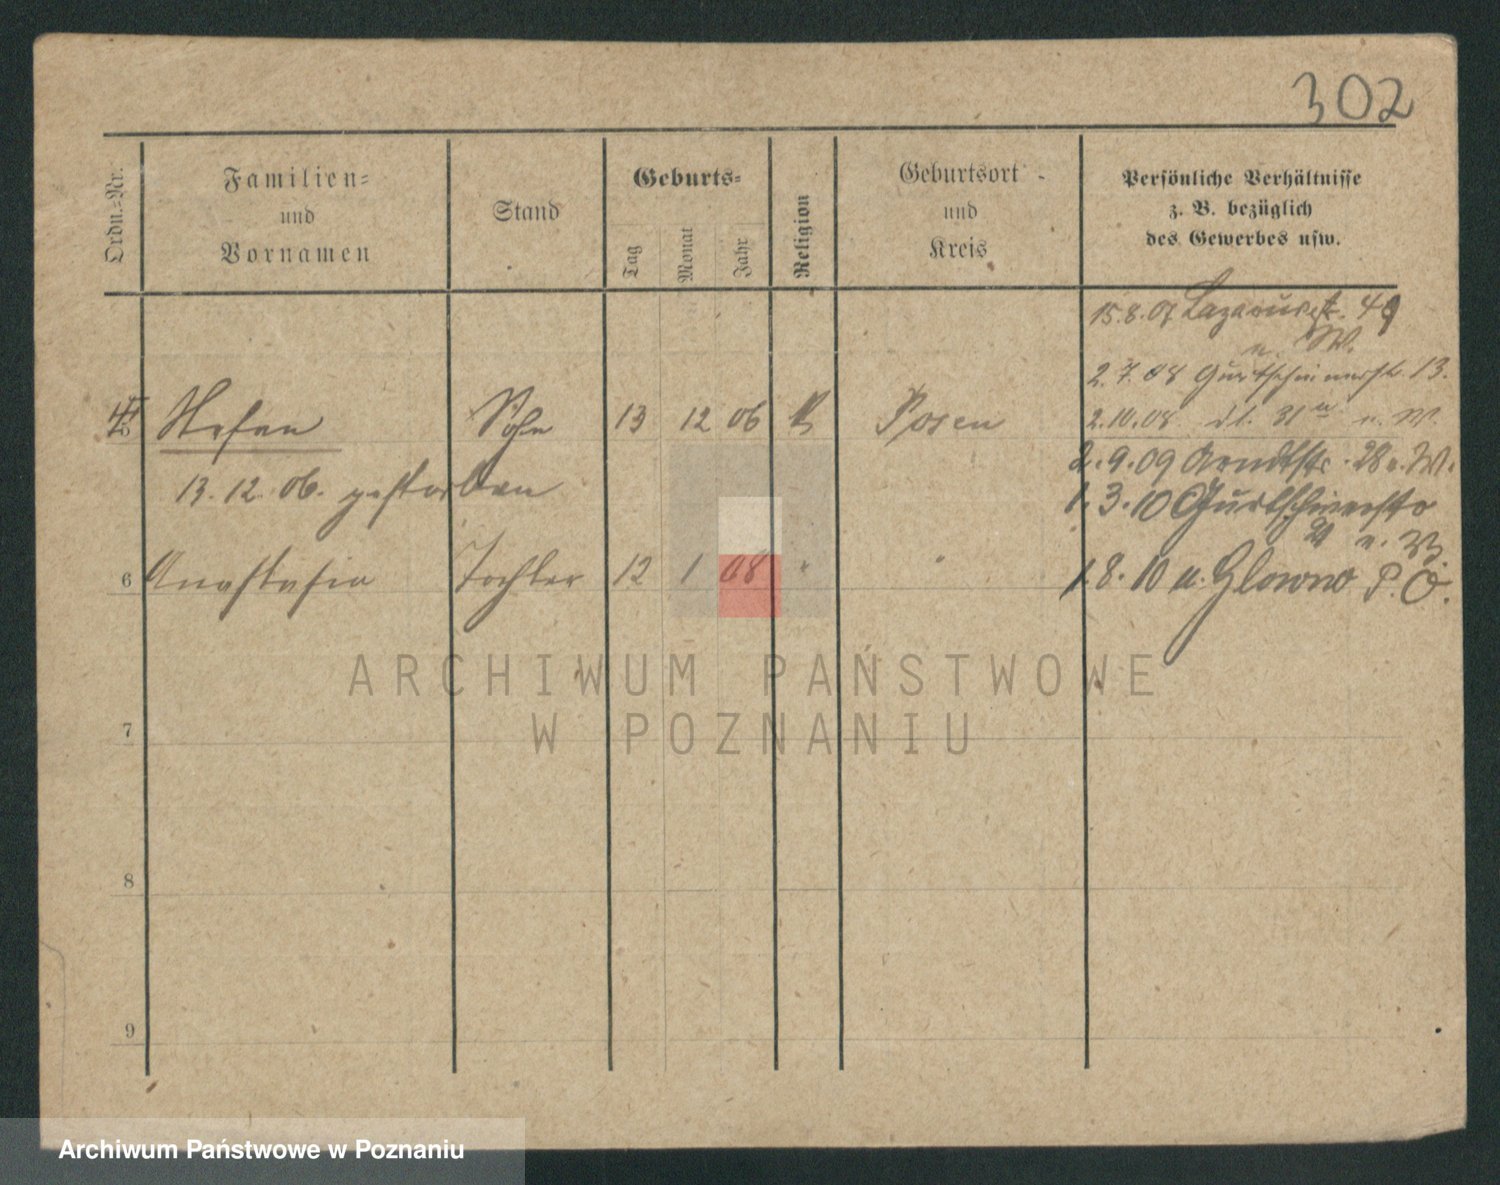 302
Ordn.-Nr.
Familien-
und
Vornamen
Stand
Geburts-
Tag
Monat
Jahr
Religion
Geburtsort
und
Kreis
Persönliche Verhältnisse
z. B. bezüglich
des Gewerbes usw.
15.8.07 Lazarusstr. 49
n. W.
2.7.08 Gurtschinerstr. 13.
2.10.08 dt. 31 n. W.
Stefan Sohn 13 12 06 K Posen
2.9.09 Arndtstr. 28 n. W.
13.12.06. gestorben
1.3.10 Gurtschinerstr
n. W.
6 Anastasia Tochter 12 1 08 " "
1.8.10 n. Glowno P. O.
7
8
9
ARCHIWUM PAŃSTWOWE
W POZNANIU
Archiwum Państwowe w Poznaniu